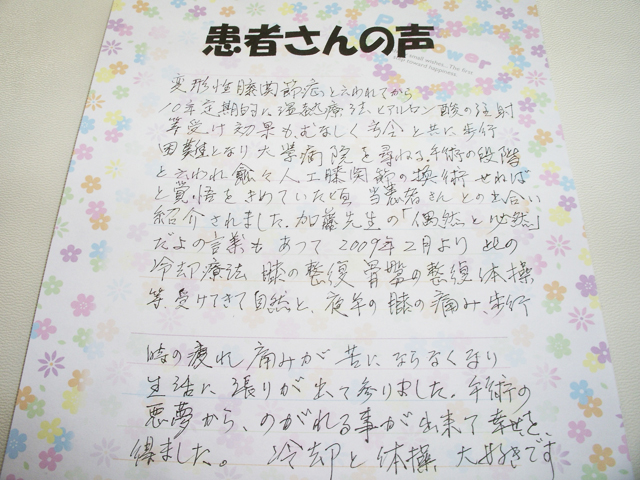 患者さんの声
Power
small wishes... The first
step toward happiness.
変形性膝関節症と云われてから
10年定期的に温熱療法とヒアルロン酸の注射
等受け効果もむなしく年令と共に歩行
困難となり大学病院を尋ねる。手術の段階
と云われ愈々人工膝関節の換術せねば
と覚悟をきめていた頃 当患者さんとの出合い
紹介されました。加藤先生の「偶然と必然」
だよの言葉もあって 2009年2月より 此の
冷却療法 膝の整復 骨盤の整復 体操
等 受けてきて自然と、夜中の膝の痛み、歩行
時の疲れ 痛みが苦にならなくなり
生活に張りが出て参りました。手術の
悪夢から、のがれる事が出来て幸せを
得ました。 冷却と体操 大好きです